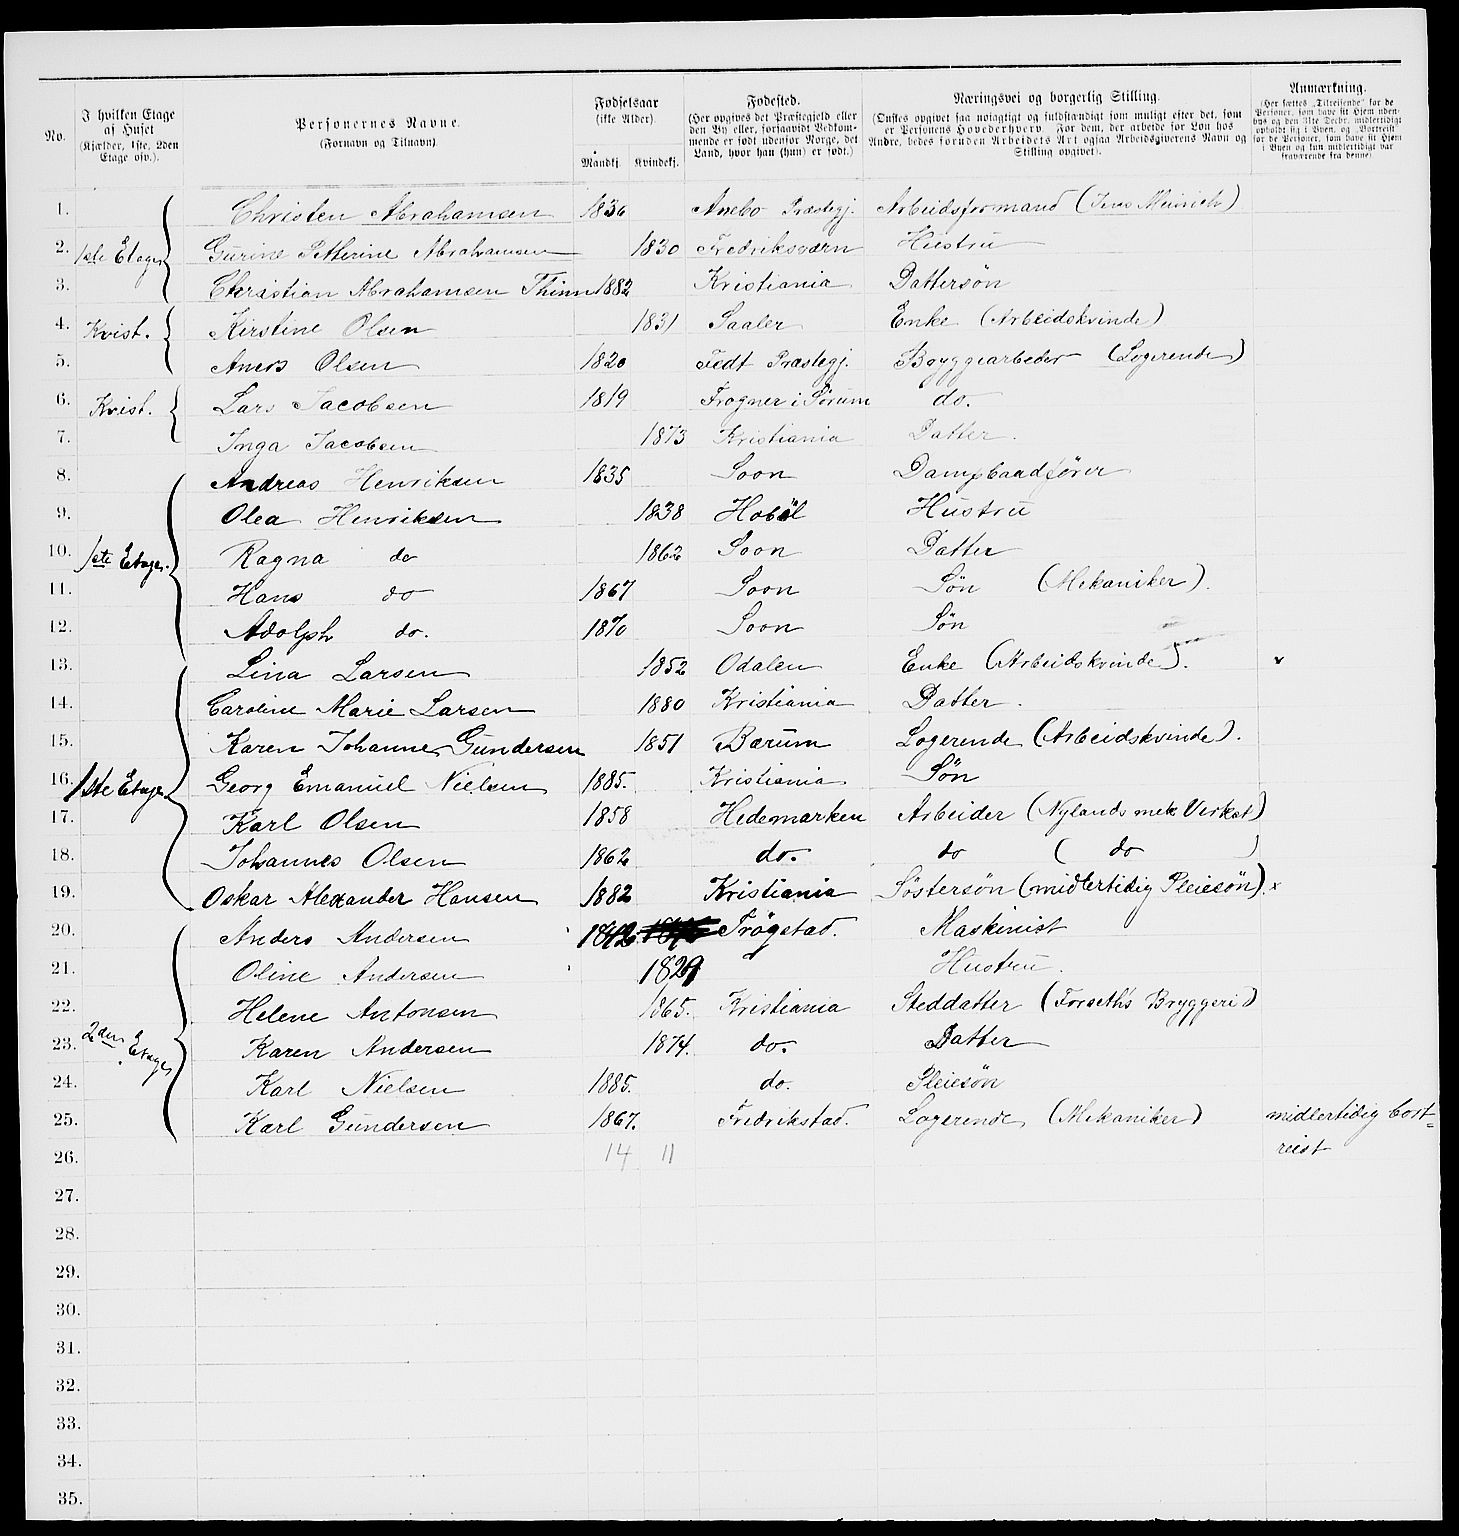 No.
I hvilken Etage af Huset (Kjælder, 1ste, 2den Etage osv.).
Personernes Navne. (Fornavn og Tilnavn)
Fødselsaar (ikke Alder). Mandkj. Kvindekj.
Fødested. (Her opgives det Præstegjeld eller den By eller, forsaavidt Vedkommende er født udenfor Norge, det Land, hvor han (hun) er født.)
Næringsvei og borgerlig Stilling. (Ønskes opgivet saa nøiagtigt og fuldstændigt som muligt efter det, som er Personens Hovederhverv. For dem, der arbeide for Løn hos Andre, bedes foruden Arbeidets Art ogsaa Arbeidsgiverens Navn og Stilling opgivet).
Anmærkning. (Her sættes „Tilreisende" for de Personer, som have sit Hjem udenbys og den 31te Decbr. midlertidigt opholdt sig i Byen, og „Bortreist" for de Personer, som have sit Hjem i Byen og kun midlertidigt var fraværende fra denne)
1. Christen Abrahamsen 1836 Anebo Præstegj. Arbeidsformand (Jens Meinich)
2. 1ste Etage Gurine Petterine Abrahamsen 1830 Fredriksværn Hustru
3. Christian Abrahamsen Thinn 1882 Kristiania Dattersøn
4. Kvist. Kirstine Olsen 1831 Saaler Enke (Arbeidskvinde)
5. Aners Olsen 1820 Fedt Præstegj. Bryggearbeder (Logerende)
6. Kvist. Lars Jacobsen 1819 Frogner i Sørum do.
7. Inga Jacobsen 1873 Kristiania Datter.
8. Andreas Henriksen 1835 Soon Dampbaadfører
9. Olea Henriksen 1838 Hobøl Hustru
10. 1ste Etage. Ragna do 1862 Soon Datter
11. Hans do 1867 Soon Søn (Mekaniker).
12. Adolph do. 1870 Soon Søn
13. Lina Larsen 1852 Odalen Enke (Arbeidskvinde).
14. Caroline Marie Larsen 1880 Kristiania Datter.
15. Karen Johanne Gundersen 1851 Bærum Logerende (Arbeidskvinde).
16. 1ste Etage Georg Emanuel Nielsen 1885. Kristiania Søn
17. Karl Olsen 1858 Hedemarken Arbeider (Nylands mek Verkst)
18. Johannes Olsen 1862 do. do ( do )
19. Oskar Alexander Hansen 1882 Kristiania Søstersøn (midlertidig Pleiesøn). x
20. Anders Andersen 1842 Trøgstad. Maskinist
21. Oline Andersen 1829 Hustru.
22. Helene Antonsen 1865. Kristiania Steddatter (Forseths Bryggeri)
23. 2den Etage Karen Andersen 1874. do. Datter
24. Karl Nielsen 1885. do. Pleiesøn
25. Karl Gundersen 1867. Fredrikstad. Logerende (Mekaniker) midlertidig bort=
26. 14 11 reist
27.
28.
29.
30.
31.
32.
33.
34.
35.